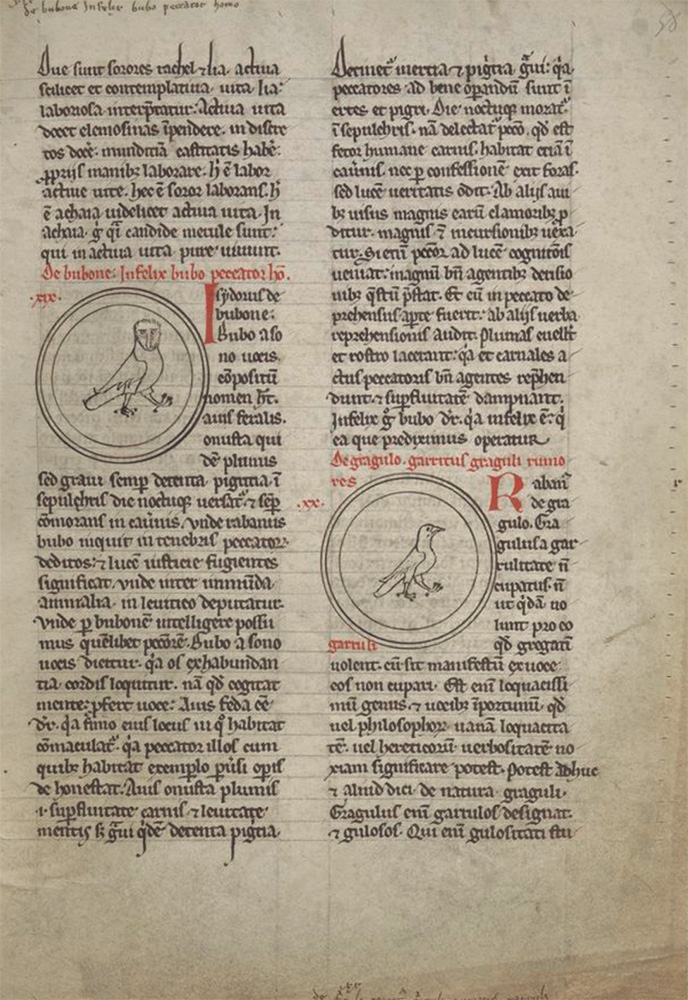 de bubone Infelix bubo peccator homo
Due sunt sorores rachel ⁊ lia. actiua
scilicet et contemplatiua. uita lia:
laboriosa interp̄tatur. Actiua uita
docet elemosinas īpendere. in discre
tos doc̄e. mundiciā castitatis hab̄e.
ꝓprijs manibꝫ laborare. h̄ ē labor
actiue uite. hec ē soror laborans. h̄
ē achaia uidelicet actiua uita. In
achaia. g̊ qͥ candide
qui in actiua uita pure uiuunt.
De bubone: Infelix bubo peccator hō.
.xix.
Isydorus de
bubone:
Bubo a so
no uocis.
cōpositū
nomen h̄t.
auis feralis.
onusta qui
dē plumis
sed graui semꝑ detenta. pigricia ī
sepulchris die noctuqꝫ uersat᷑. ⁊ semꝑ
cōmorans in cauīuis. Vnde rabanus
bubo inquit in tenebris peccatorꝫ
deditos: ⁊ lucē iusticie fugientes
significat. vnde inter inmūda
animalia. in leuitico deputatur.
Vnde ꝑ bubonē intelligere possu
mus quēlibet pec̄orē. Bubo a sono
uocis dicitur. qͥa os ex habundan
tia cordis loquitur. nā qd̄ cogitat
mente: ꝓfert uoce: Auis feda ēe
dr̄. qͥa fimo eius locus in qͦ habitat
cōmaculat᷑. qͥa peccator illos cum
quibꝫ habitat exemplo opis
de honestat. Auis onusta plumis
.i. suꝑfluitate carnis ⁊ leuitate
mentis sꝫ g̊ui qͥdē detenta pigria.
Detinet᷑ inertia ⁊ pigr̄ia g̊ui: qͥa
peccatores ad bene oꝑandū sunt ī
ertes et pigri. Die noctuqꝫ morat᷑
ī sepulchris. nā delectat᷑ pec̄o. qd̄ est
fetor humane carnis. habitat etiā ī
cauīuis. nec ꝑ confessionē exit foras.
sed lucē ueritatis odit. Ab alijs aui
bꝫ uisus magnis earū clamoribꝫ ꝓ
ditur. magnis ⁊ incursionibꝫ uexa
tur. Si etiā pec̄or ad lucē cognitōis
ueniat: magnū bn̄ agentibꝫ derisio
nibꝫ p̄stat. Et cū in peccato de
prehensus aꝑte fuerit. ab alijs uerba
reprehensionis audit. Plumas euellt̄
et rostro lacerant: qͥa et carnales a
ctus peccatoris bn̄ agentes rep̄hen
dunt. ⁊ suꝑfluitatē dampnant.
Infelix g̊ bubo dr̄. qͥa infelix ē: qͥ
ea que prediximus operatur
De gragulo. garritus graguli rumo
res
.xx.
Raban᷑
de gra
gulo. Gra
gulus a gar
rulitate n̄
cupatus. n̄
ut qͥdā. uo
lunt pro eo
garruli
qd̄ gregatī
uolent. cū sit manifestū ex uoce
eos non cupari. Est enī loquacissi
mū genus. ⁊ uocibꝫ īportunū. qd̄
uel philosophoꝝ uanā loquacita
tē. uel hereticorū uerbositatē no
xiam significare potest. Potest adhuc
⁊ aliud dici de natura graguli.
Gragulus enī garrulos designat.
⁊ gulosos. Qui enī gulositati stu